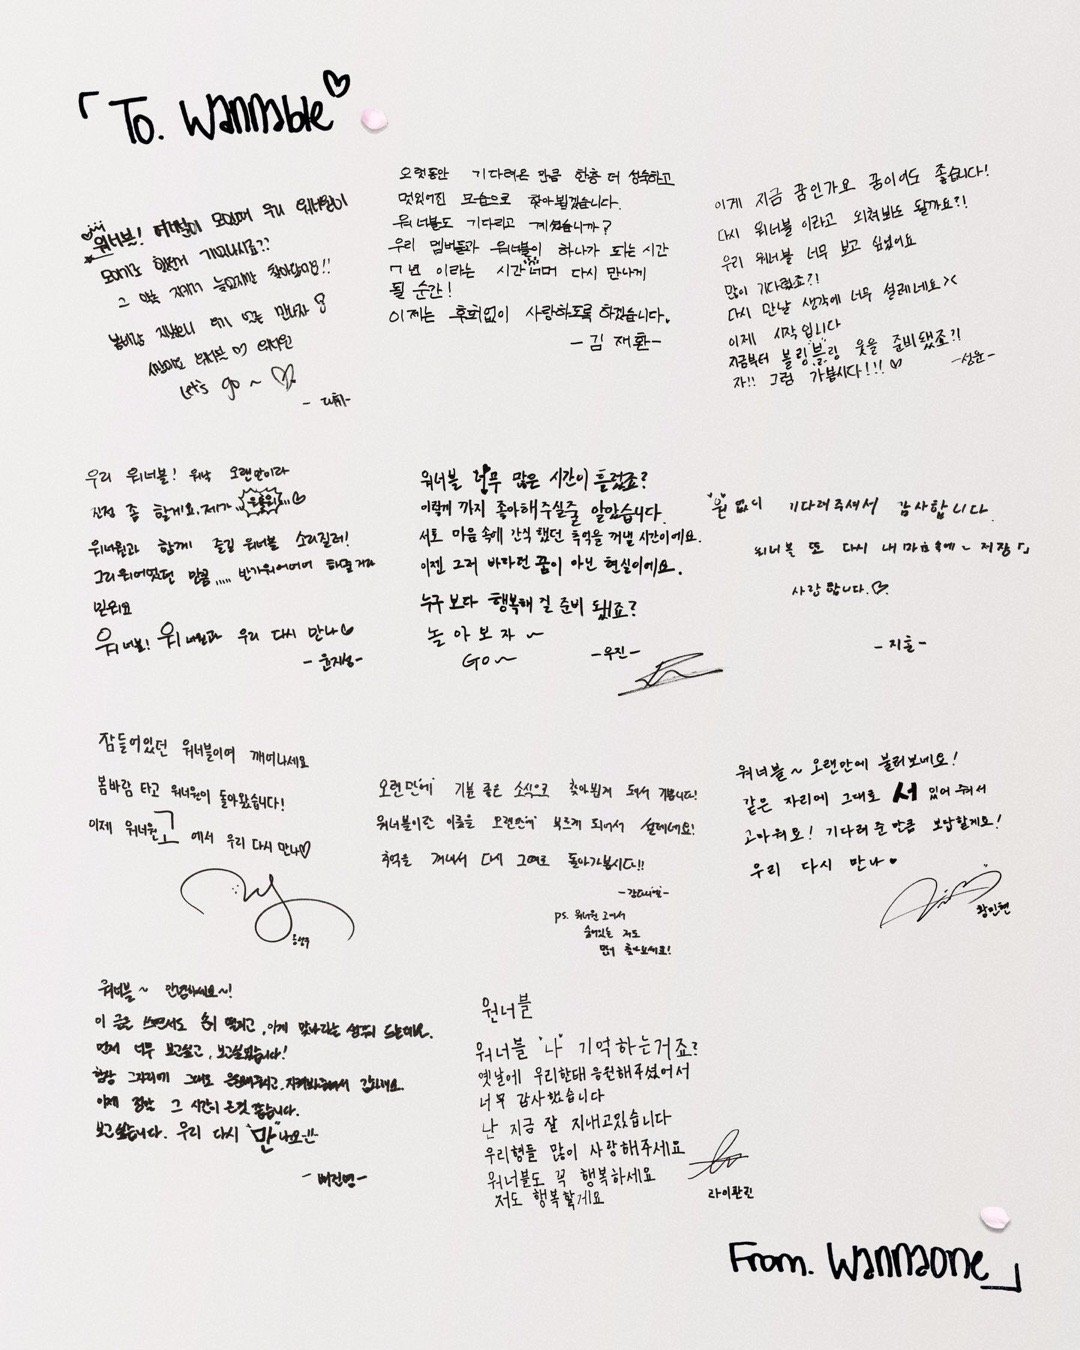 「To. Wannable♡
워너블! 여러분이 모이며 우리 워너원이
그 약속 지키기 늦었지만 찾아왔어요!!
Let's go ~ ♡
오랫동안 기다려온 만큼 한층 더 성숙하고
멋있어진 모습으로 찾아뵙겠습니다.
워너블도 기다리고 계셨습니까?
우리 멤버들과 워너블이 하나가 되는 시간
7년 이라는 시간 너머 다시 만나게
될 순간!
이제는 후회없이 사랑하도록 하겠습니다.
- 김재환 -
이게 지금 꿈인가요 꿈이어도 좋습니다!
다시 워너블 이라고 외쳐봐도 될까요?!
우리 워너블 너무 보고 싶었어요
많이 기다렸죠?!
다시 만날 생각에 너무 설레네요><
이제 시작입니다
지금부터 블링블링 웃을 준비됐죠?!
자!! 그럼 가봅시다!!!♡
- 성운 -
우리 워너블! 워낙 오랜만이라
긴장 좀 할게요. 제가
워너원과 함께 즐길 워너블 소리질러!
그리워어었던 만큼..... 반가워어어어
믿워요
워너블! 워너원과 우리 다시 만나♡
- 윤지성 -
워너블 너무 많은 시간이 흘렀죠?
이렇게 까지 좋아해주실줄 알았습니다.
서로 마음 속에 간직했던 추억을 꺼낼 시간이에요.
이젠 그저 바라던 꿈이 아닌 현실이에요.
누구보다 행복해 질 준비 됐죠?
놀아보자 ~
GO~
- 우진 -
"원"없이 기다려주셔서 감사합니다.
워너블 또 다시 내 마음속에~ 저장「」
사랑합니다.♡
- 지훈 -
잠들어있던 워너블이여 깨어나세요
봄바람 타고 워너원이 돌아왔습니다!
이제 워너원 고 에서 우리 다시 만나♡
옹성우
오랜만에 기분 좋은 소식으로 찾아뵙게 되어서 기쁩니다!
워너블이란 이름을 오랜만에 부르게 되어서 설레네요!
추억을 꺼내서 다시 그때로 돌아가봅시다!!
- 강다니엘 -
ps. 워너원 고에서
숨어있는 저도
많이 찾아보세요!
워너블~ 오랜만에 불러보네요!
같은 자리에 그대로 서 있어 줘서
고마워요! 기다려준 만큼 보답할게요!
우리 다시 만나♥
황민현
워너블~ 안녕하세요~!
이 글을 쓰면서도 손이 떨리고, 이게 맞나라는 생각이 드는데요.
먼저 너무 보고싶고, 보고싶었습니다!
항상 그자리에 그대로 응원해주시고, 지켜봐주셔서 감사해요.
이제 정말 그 시간이 온것 같습니다.
보고싶습니다. 우리 다시 "만"나요!!
- 배진영 -
원너블
워너블 "나" 기억하는거죠?
옛날에 우리한태 응원해주셨어서
너무 감사했습니다
난 지금 잘 지내고있습니다
우리형들 많이 사랑해주세요
워너블도 꼭 행복하세요
저도 행복할게요
라이관린
From. Wannaone」